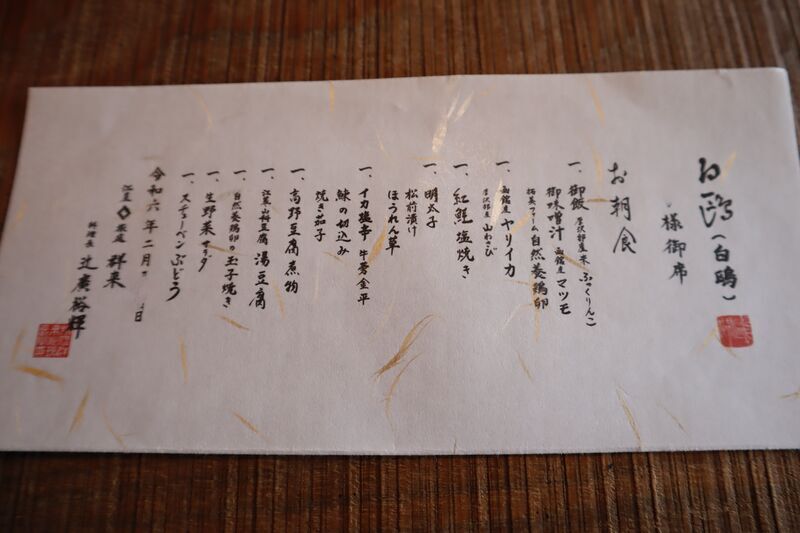 (白鴎)
様御席
お朝食
一、御飯 厚沢部産米 ふっくりんこ
御味噌汁 函館産 マツモ
拓美ファーム 自然養鶏卵
一、函館産 ヤリイカ
厚沢部産 山わさび
一、紅鮭塩焼き
一、明太子
松前漬け
ほうれん草
一、イカ塩辛 牛蒡金平
鰊の切込み
焼き茄子
一、高野豆腐煮物
一、江差 豆腐 湯豆腐
一、自然養鶏卵の玉子焼き
一、生野菜サラダ
一、スチューベンぶどう
令和六年二月 日
江差 旅庭 群来
料理長 辻廣裕輝